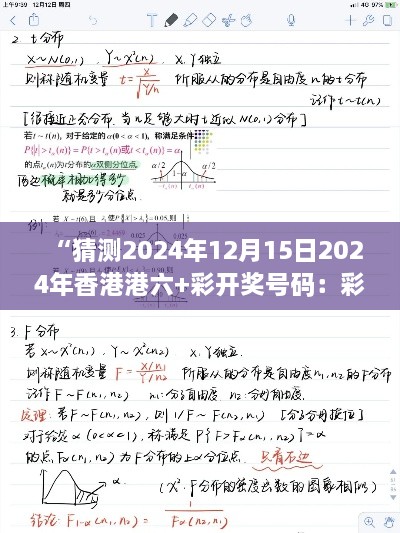 上午9:39 12月12日 周四
97%
2. t分布
X~N(0,1), Y~X²(n) X.Y独立
则称随机变量 t=X/√Y/n 所服从的分布是自由度n的t分布
记作t~t(n)
[很接近正态分布.当n足够大时t近似N(0,1)分布]
若t~t(n), 对于给定的α(0<α<1), 称满足条件
P{|t|>tα(n)}=P{t>tα(n)或t<-tα(n)}
的点tα(n)为t分布的α双侧分位点.
α/2 α/2
“猜测2024年12月15日202
4年香港港六+彩开奖号码：彩
3. F分布
若X~X²(n₁), Y~X²(n₂) X.Y独立.
则称随机变量 F=X/n₁/Y/n₂ 所服从的分布是自由度n₁,n₂的F分布
记作F~F(n₁,n₂) n₁:分子自由度 n₂:分母自由度.
定理: 若F~F(n₁,n₂), 则1/F~F(n₂,n₁) [分子分母换位]
对于给定α(0<α<1), 称满足P{F>Fα(n₁,n₂)}=α
的点Fα(n₁,n₂)为F分布的上α分位点. 只有右边
α
(X².F分布的密度函数的图象相似)
结论: F₁₋α(n₁,n₂)=1/Fα(n₂,n₁)